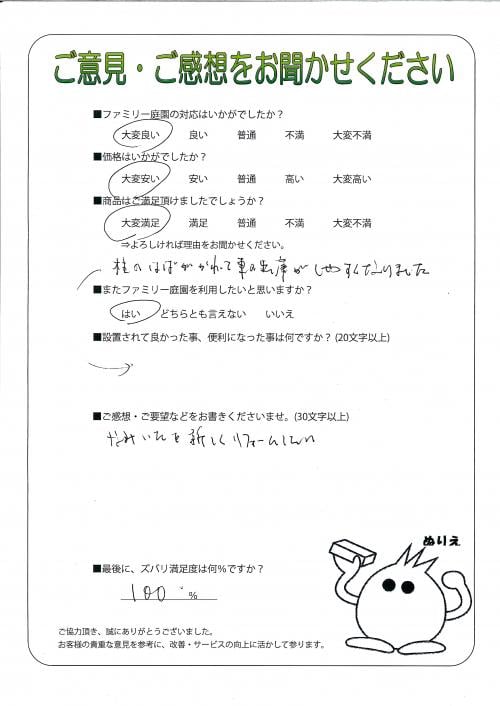 ご意見・ご感想をお聞かせください
■ファミリー庭園の対応はいかがでしたか？
大変良い 良い 普通 不満 大変不満
■価格はいかがでしたか？
大変安い 安い 普通 高い 大変高い
■商品はご満足頂けましたでしょうか？
大変満足 満足 普通 不満 大変不満
⇒よろしければ理由をお聞かせください。
柱のはばがかわって車の出庫がしやすくなりました
■またファミリー庭園を利用したいと思いますか？
はい どちらとも言えない いいえ
■設置されて良かった事、便利になった事は何ですか？(20文字以上)
■ご感想・ご要望などをお書きくださいませ。(30文字以上)
なみいたを新しくリフォームしたい
ぬりえ
■最後に、ズバリ満足度は何％ですか？
100 %
ご協力頂き、誠にありがとうございました。
お客様の貴重な意見を参考に、改善・サービスの向上に活かして参ります。